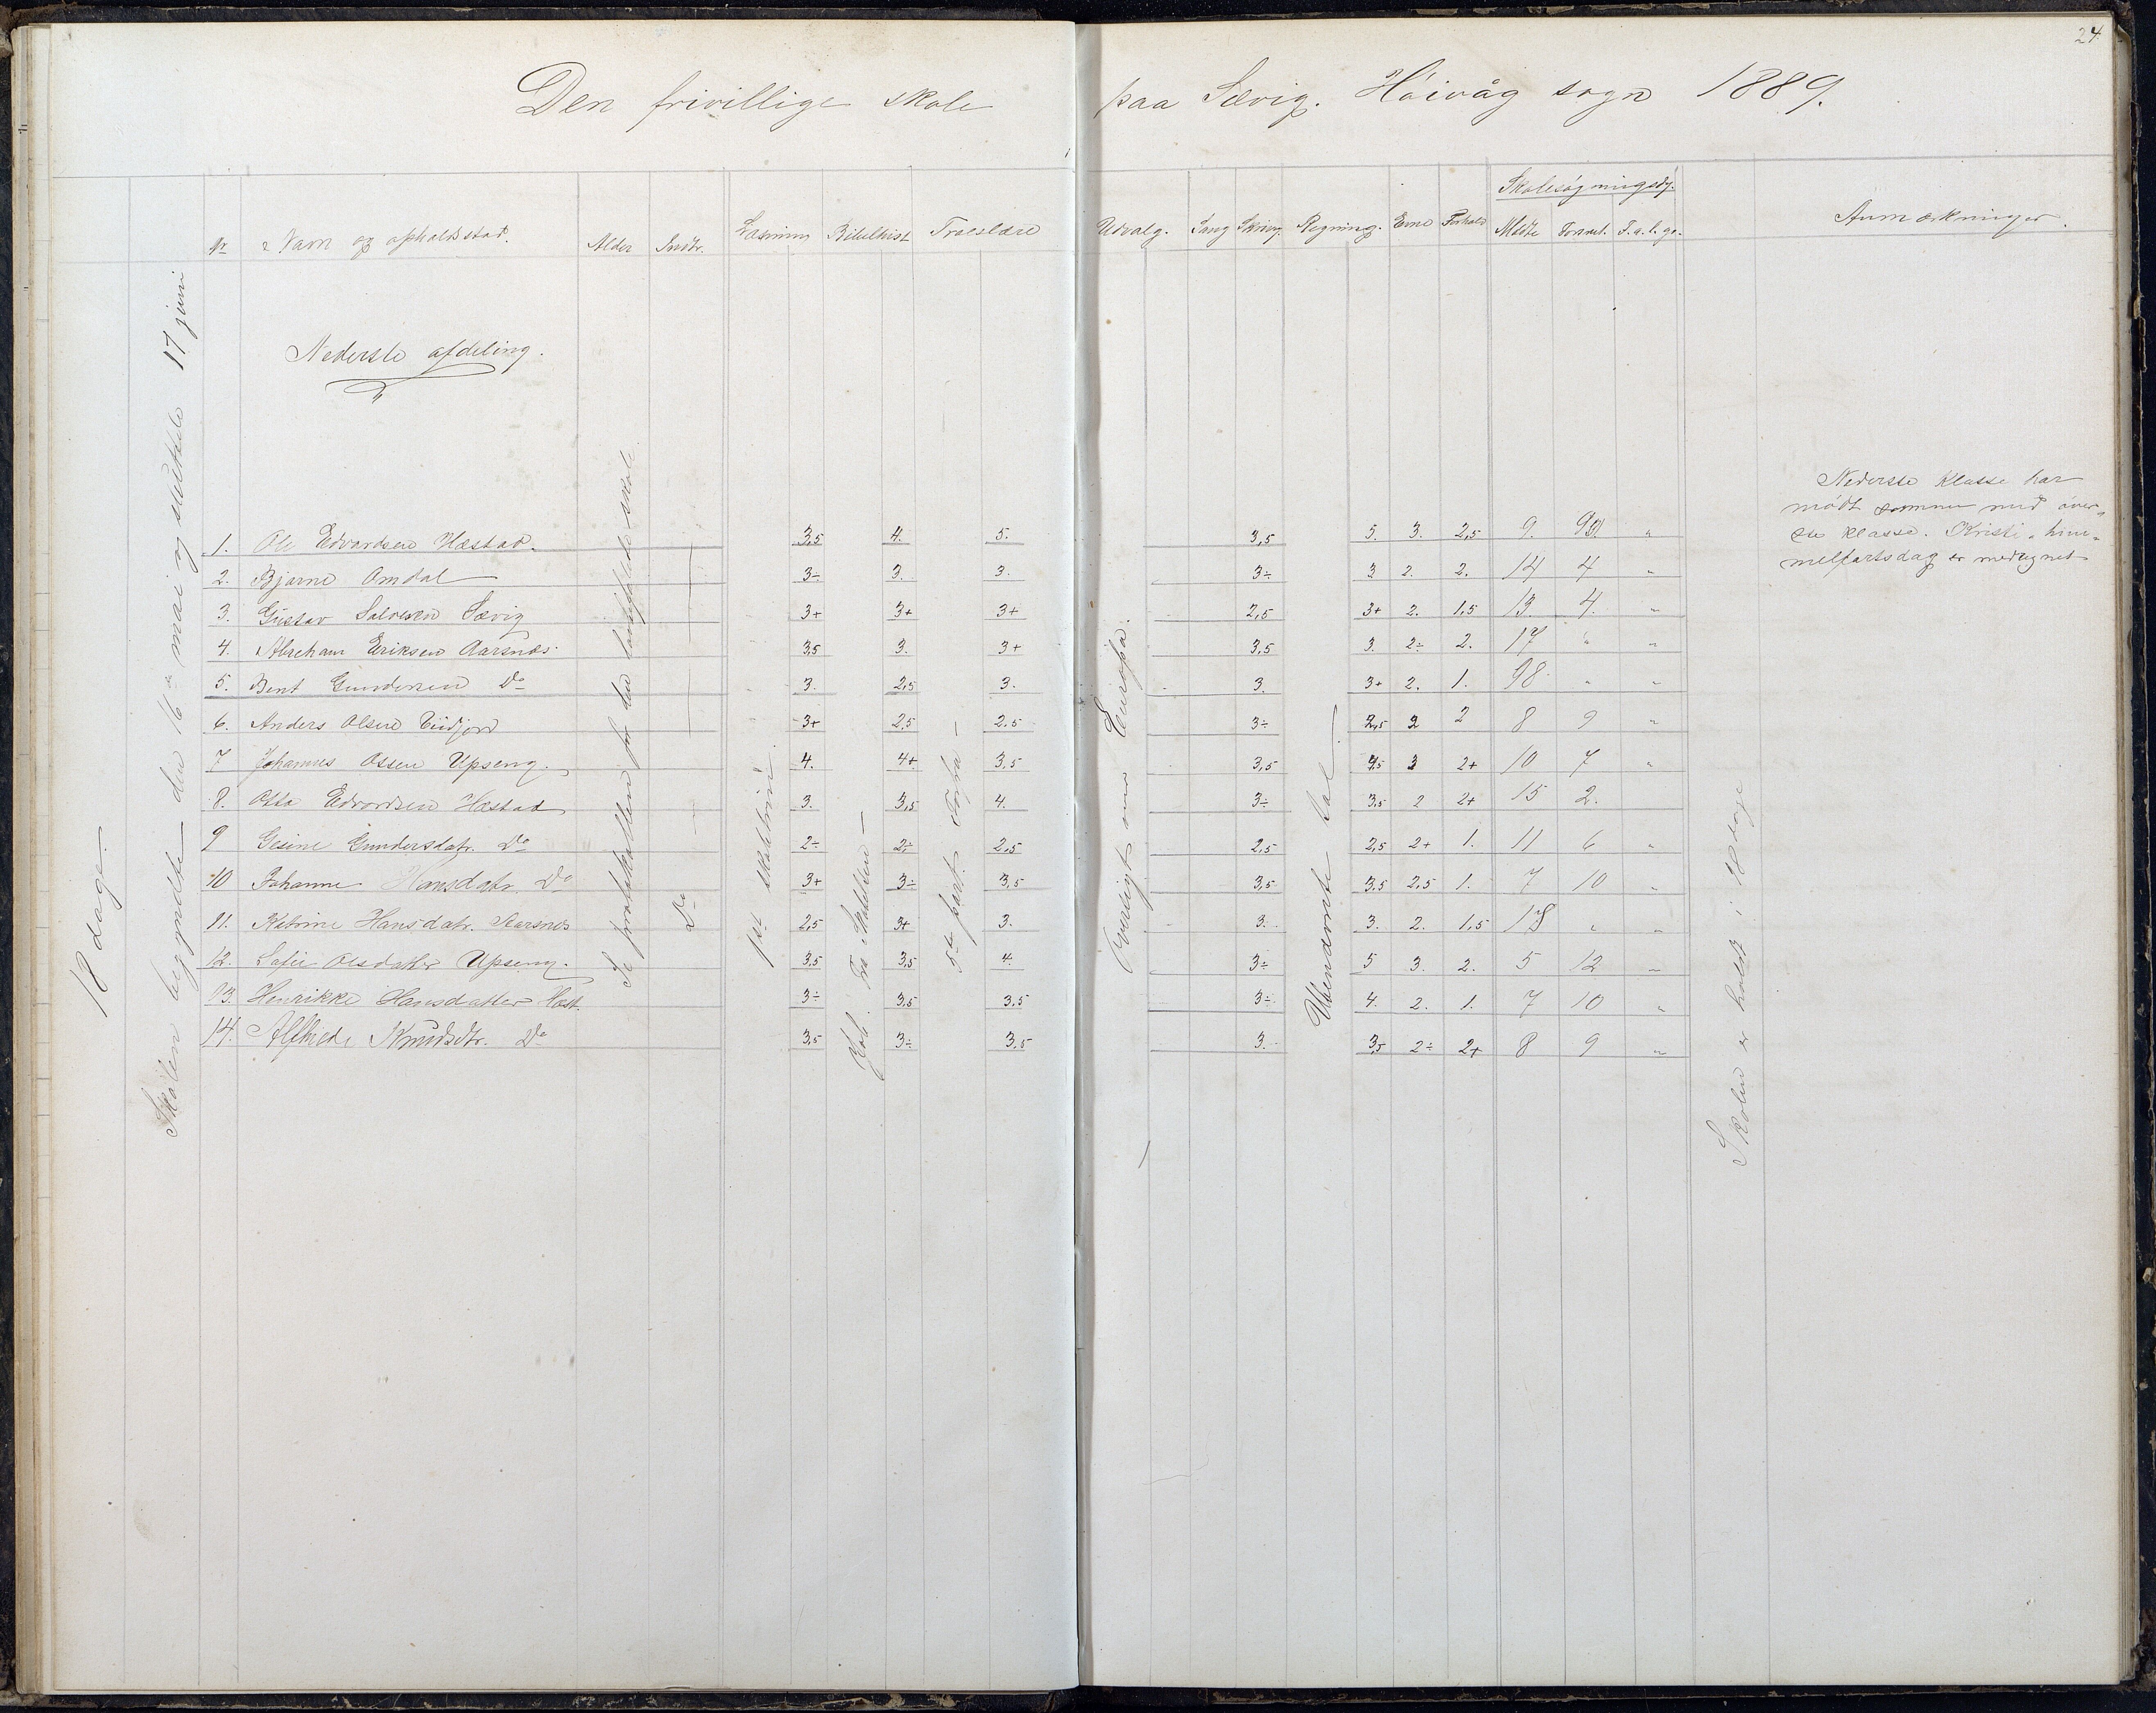 24
Den frivillige skole paa Sævig. Höivåg sogn 1889.
Skolesögningsdg.
Nr Navn og opholdsstad. Alder Indtr. Læsning Bibelhist Troeslære Udvalg. Sang Skriv. Regning. Evne Forhold Mødte Forsømt. F.a.l.gr. Anmærkninger.
18 dage.
Skolen begyndte den 16de mai og sluttede 17 juni
Nederste afdeling.
Se protokollen for den lovbefalede skole.
Do
1ste skoletrin.
5te part. Sofra
Oversigt over Europa.
Ubenævnte tal.
Skolen er holdt i 18 dage
Nederste klasse har
mödt sammen med øver-
ste klasse. Kristi him-
melfartsdag er medregnet
1. Ole Edvardsen Hæstad. 3,5 4. 5. 3,5 5. 3. 2,5 9. 9. "
2. Bjarne Omdal 3÷ 3. 3. 3÷ 3 2. 2. 14 4 "
3. Gustav Salvesen Sævig 3+ 3+ 3+ 2,5 3+ 2. 1,5 13. 4. "
4. Abraham Eriksen Aarsnæs. 3,5 3. 3+ 3,5 3. 2÷ 2. 17 " "
5. Bent Gundersen Do 3. 2,5 3. 3. 3+ 2. 1. 18 " "
6. Anders Olsen Eidjord 3+ 2,5 2.5 3÷ 2,5 2 2 8 9 "
7 Johannes Ossen Upseng. 4. 4+ 3,5 3,5 4,5 3 2+ 10 7 "
8. Otto Edvardsen Hæstad 3. 3,5 4. 3÷ 3,5 2 2+ 15 2.
9 Gesine Gundersdatr. Do 2÷ 2÷ 2,5 2,5 2,5 2+ 1. 11 6 "
10 Johanne Hansdatr. Do 3+ 3÷ 3,5 3,5 3.5 2,5 1. 7 10 "
11. Katrine Hansdatr. Aarsnes 2,5 3+ 3. 3. 3. 2. 1,5 18 " "
12. Sofie Olsdatter Upseng. 3,5 3,5 4. 3÷ 5 3. 2. 5 12 "
13. Henrikke Hansdatter Hæst. 3÷ 3,5 3,5 3÷ 4. 2. 1. 7 10 "
14. Alfhed Knudsdtr. Do 3,5 3÷ 3,5 3. 3,5 2÷ 2+ 8 9 "